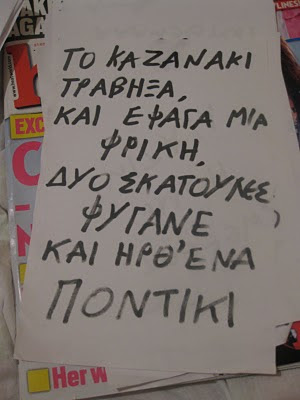 ΤΟ ΚΑΖΑΝΑΚΙ
ΤΡΑΒΗΞΑ,
ΚΑΙ ΕΦΑΓΑ ΜΙΑ
ΦΡΙΚΗ,
ΔΥΟ ΣΚΑΤΟΥΛΕΣ
ΦΥΓΑΝΕ
ΚΑΙ ΗΡΘ'ΕΝΑ
ΠΟΝΤΙΚΙ
Her W